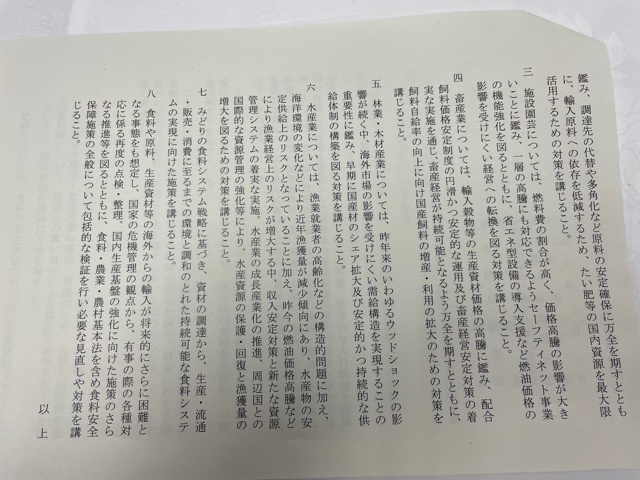 鑑み、調達先の代替や多角化など原料の安定確保に万全を期すととも
に、輸入原料への依存を低減するため、たい肥等の国内資源を最大限
活用するための対策を講じること。
三　施設園芸については、燃料費の割合が高く、価格高騰の影響が大き
いことに鑑み、一層の高騰にも対応できるようセーフティネット事業
の機能強化を図るとともに、省エネ型設備の導入支援など燃油価格の
影響を受けにくい経営への転換を図る対策を講じること。
四　畜産業については、輸入穀物等の生産資材価格の高騰に鑑み、配合
飼料価格安定制度の円滑かつ安定的な運用及び畜産経営安定対策の着
実な実施を通じ、畜産経営が持続可能となるよう万全を期すとともに、
飼料自給率の向上に向け国産飼料の増産・利用の拡大のための対策を
講じること。
五　林業・木材産業については、昨年来のいわゆるウッドショックの影
響が続く中、海外市場の影響を受けにくい需給構造を実現することの
重要性に鑑み、早期に国産材のシェア拡大及び安定的かつ持続的な供
給体制の構築を図る対策を講じること。
六　水産業については、漁業就業者の高齢化などの構造的問題に加え、
海洋環境の変化などにより近年漁獲量が減少傾向にあり、水産物の安
定供給上のリスクとなっていることに加え、昨今の燃油価格高騰など
により漁業経営上のリスクが増大する中、収入安定対策と新たな資源
管理システムの着実な実施、水産業の成長産業化の推進、周辺国との
国際的な資源管理の強化等により、水産資源の保護・回復と漁獲量の
増大を図るための対策を講じること。
七　みどりの食料システム戦略に基づき、資材の調達から、生産・流通
・販売・消費に至るまでの環境と調和のとれた持続可能な食料システ
ムの実現に向けた施策を講じること。
八　食料や原料、生産資材等の海外からの輸入が将来的にさらに困難と
なる事態をも想定し、国家の危機管理の観点から、有事の際の各種対
応に係る再度の点検・整理、国内生産基盤の強化に向けた施策のさら
なる推進等を図るとともに、食料・農業・農村基本法を含め食料安全
保障施策の全般について包括的な検証を行い必要な見直しや対策を講
じること。
以上